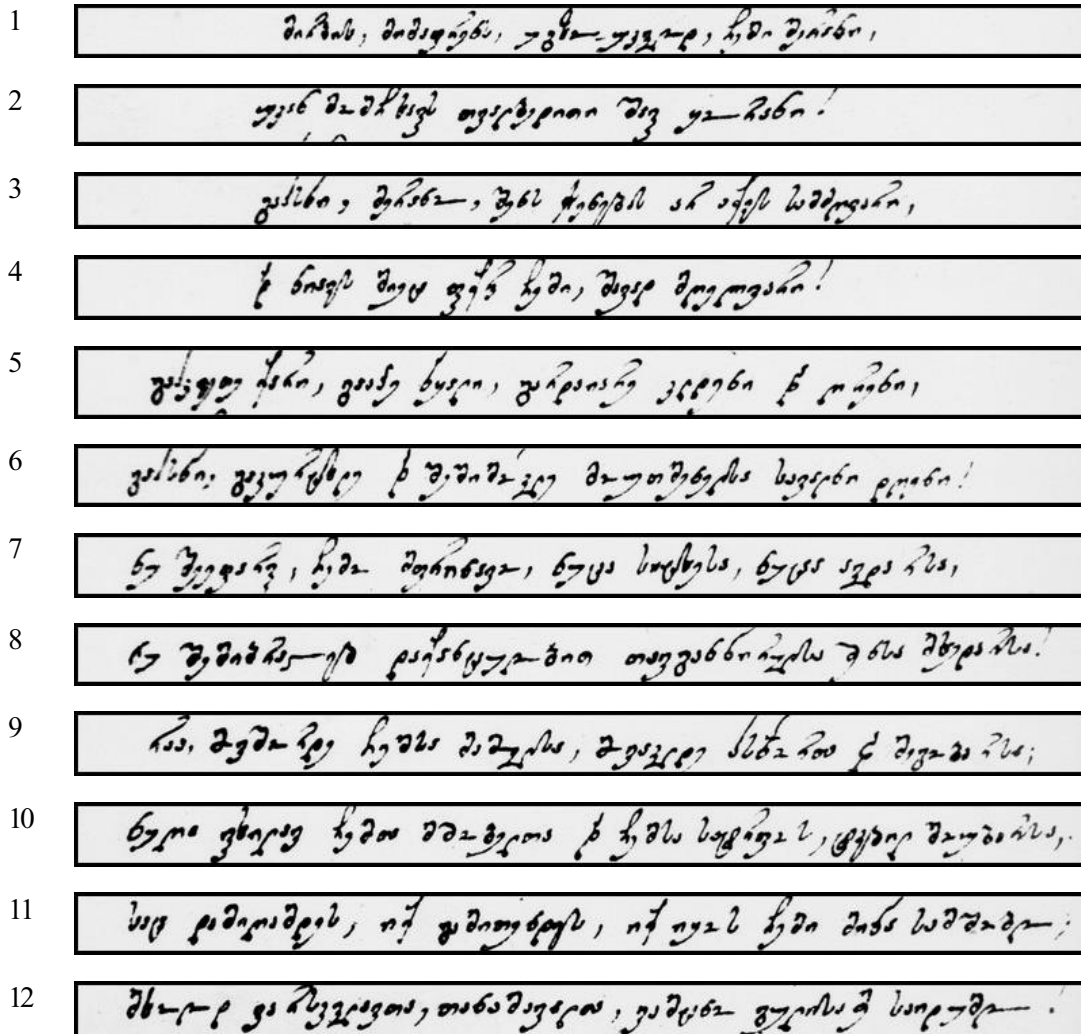 1 მირბის, მიმაფრენს, უგზო-უკვლოდ, ჩემი მერანი,
2 უკან მომჩხავს თვალბედითი შავი ყორანი!
3 გასწი, მერანო, შენს ჭენებას არ აქვს სამძღვარი,
4 და ნიავს მიეც ფიქრი ჩემი, შავად მღელვარი!
5 გააკვეთე ქარი, გააპე წყალი, გარდაიარე კლდენი და ღრენი,
6 გასწი, გაკურცხლე და შემიმოკლე მოუთმენელსა სავალნი დღენი!
7 ნუ შეეფარვი, ჩემო მფრინავო, ნუცა სიცხესა, ნუცა ავდარსა,
8 ნუ შემიბრალებ დაქანცულობით თავგანწირულსა შენსა მხედარსა!
9 რაა, მოვშორდე ჩემსა მამულსა, მოვაკლდე სწორთა და მეგობარსა;
10 ნუღა ვიხილავ ჩემთა მშობელთა და ჩემსა სატრფოს, ტკბილ მოუბარსა,
11 საც დამიღამდეს, იქ გამითენდეს, იქ იყოს ჩემი მიწა სამშობლო;
12 მხოლოდ ვარსკვლავთა, თანამავალთა, ვამცნო გულისა მე საიდუმლო!